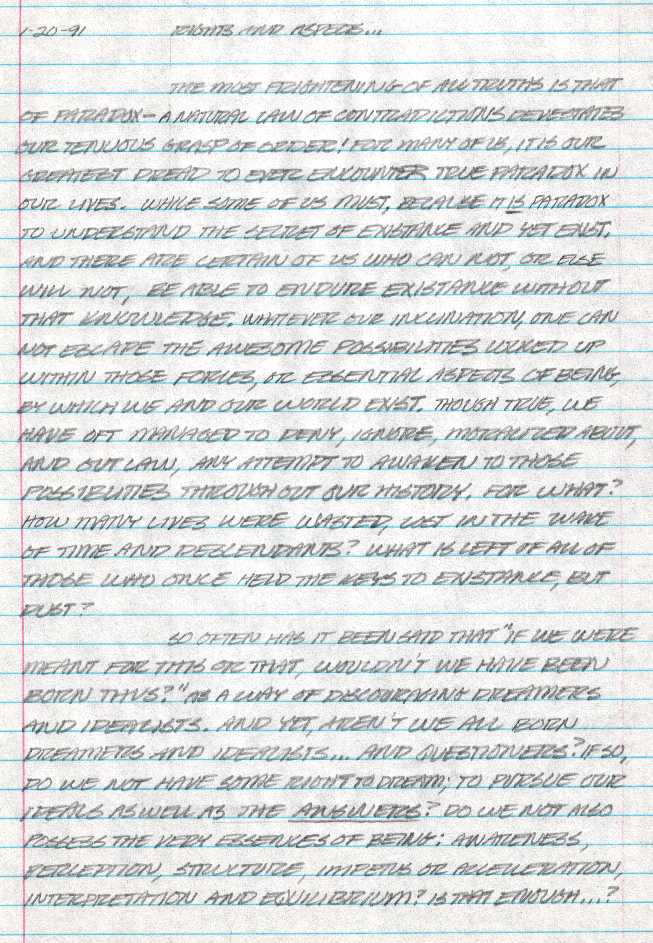 1-20-91 RIGHTS AND ASPECTS...
THE MOST FRIGHTENING OF ALL TRUTHS IS THAT
OF PARADOX— A NATURAL LAW OF CONTRADICTIONS DEVESTATES
OUR TENUOUS GRASP OF ORDER! FOR MANY OF US, IT IS OUR
GREATEST DREAD TO EVER ENCOUNTER TRUE PARADOX IN
OUR LIVES. WHILE SOME OF US MUST, BECAUSE IT IS PARADOX
TO UNDERSTAND THE SECRET OF EXISTANCE AND YET EXIST.
AND THERE ARE CERTAIN OF US WHO CAN NOT, OR ELSE
WILL NOT, BE ABLE TO ENDURE EXISTANCE WITHOUT
THAT KNOWLEDGE. WHATEVER OUR INCLINATION, ONE CAN
NOT ESCAPE THE AWESOME POSSIBILITIES LOCKED UP
WITHIN THOSE FORCES, OR ESSENTIAL ASPECTS OF BEING,
BY WHICH WE AND OUR WORLD EXIST. THOUGH TRUE, WE
HAVE OFT MANAGED TO DENY, IGNORE, MORALIZED ABOUT,
AND OUTLAW, ANY ATTEMPT TO AWAKEN TO THOSE
POSSIBILITIES THROUGHOUT OUR HISTORY. FOR WHAT?
HOW MANY LIVES WERE WASTED, LOST IN THE WAKE
OF TIME AND DESCENDANTS? WHAT IS LEFT OF ALL OF
THOSE WHO ONCE HELD THE KEYS TO EXISTANCE, BUT
DUST?
SO OFTEN HAS IT BEEN SAID THAT "IF WE WERE
MEANT FOR THIS OR THAT, WOULDN'T WE HAVE BEEN
BORN THUS?" AS A WAY OF DISCOURAGING DREAMERS
AND IDEALISTS. AND YET, AREN'T WE ALL BORN
DREAMERS AND IDEALISTS... AND QUESTIONERS? IF SO,
DO WE NOT HAVE SOME RIGHT TO DREAM; TO PURSUE OUR
IDEALS AS WELL AS THE ANSWERS? DO WE NOT ALSO
POSSESS THE VERY ESSENCES OF BEING: AWARENESS,
PERCEPTION, STRUCTURE, IMPETUS OR ACCELERATION,
INTERPRETATION AND EQUILIBRIUM? IS THAT ENOUGH...?